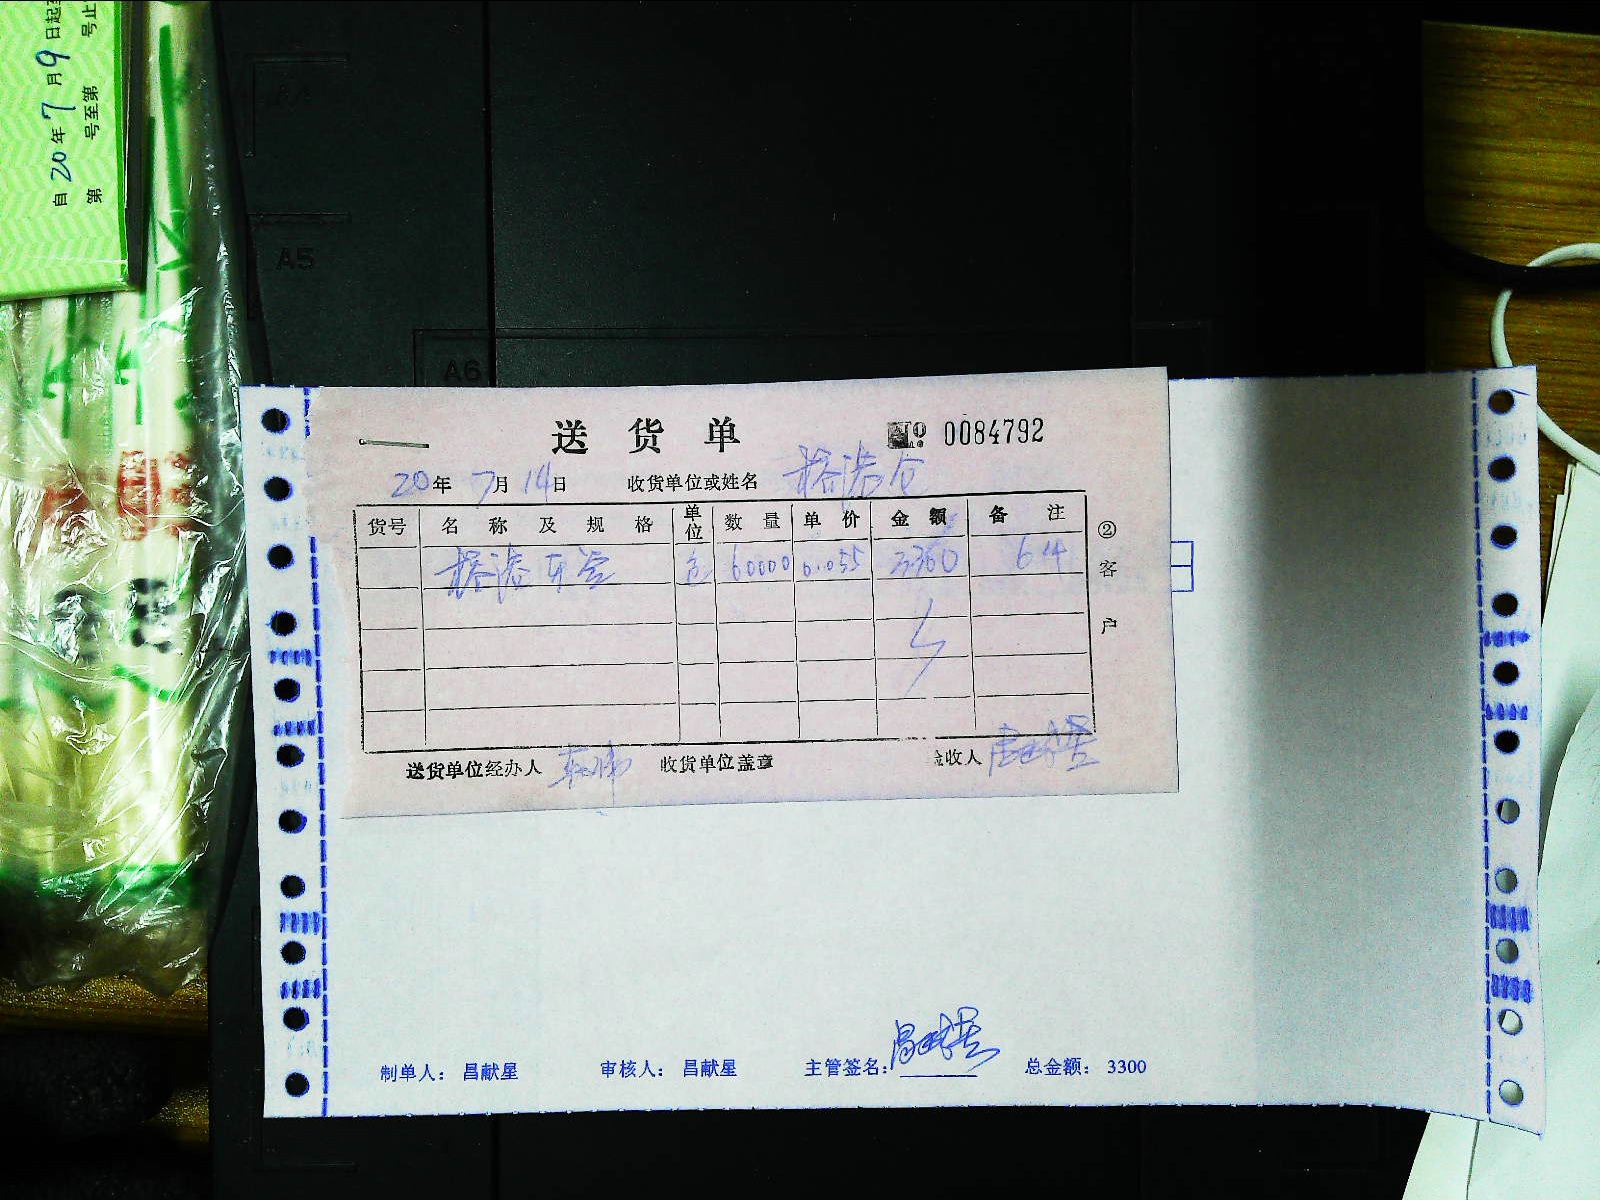 自20年7月9日起至
第 号至第 号止
A5
A6
送货单 № 0084792
20年7月14日 收货单位或姓名
货号 名称及规格 单位 数量 单价 金额 备注
60000 0.055 6件
②客户
送货单位经办人 收货单位盖章 验收人 昌献星
制单人： 昌献星 审核人： 昌献星 主管签名： 昌献星 总金额： 3300